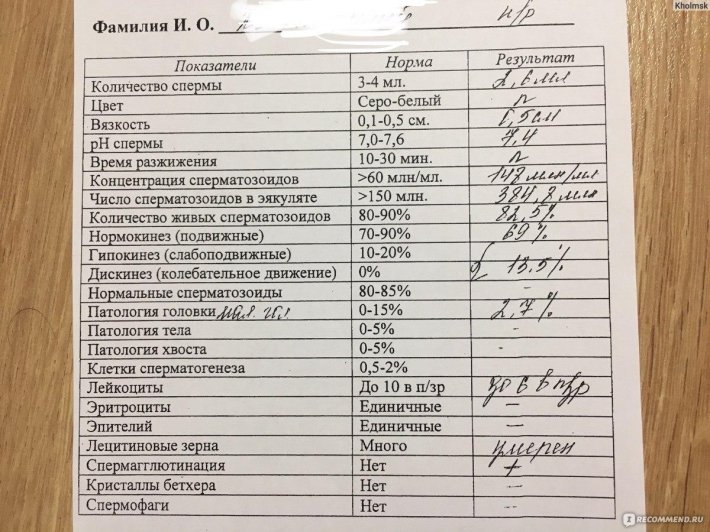 Kholmsk
Фамилия И. О. н/р
Показатели Норма Результат
Количество спермы 3-4 мл. 2,6 мл
Цвет Серо-белый n
Вязкость 0,1-0,5 см. 0,5см
pH спермы 7,0-7,6 7,4
Время разжижения 10-30 мин. n
Концентрация сперматозоидов >60 млн/мл. 148 млн/мл
Число сперматозоидов в эякуляте >150 млн. 384,8 млн
Количество живых сперматозоидов 80-90% 82,5%
Нормокинез (подвижные) 70-90% 69%
Гипокинез (слабоподвижные) 10-20%
Дискинез (колебательное движение) 0% 13.5%
Нормальные сперматозоиды 80-85% -
Патология головки 0-15% 2,7%
Патология тела 0-5% -
Патология хвоста 0-5% -
Клетки сперматогенеза 0,5-2%
Лейкоциты До 10 в п/зр до 6 в п/зр
Эритроциты Единичные -
Эпителий Единичные -
Лецитиновые зерна Много умерен
Спермагглютинация Нет +
Кристаллы бетхера Нет -
Спермофаги Нет -
IRECOMMEND.RU